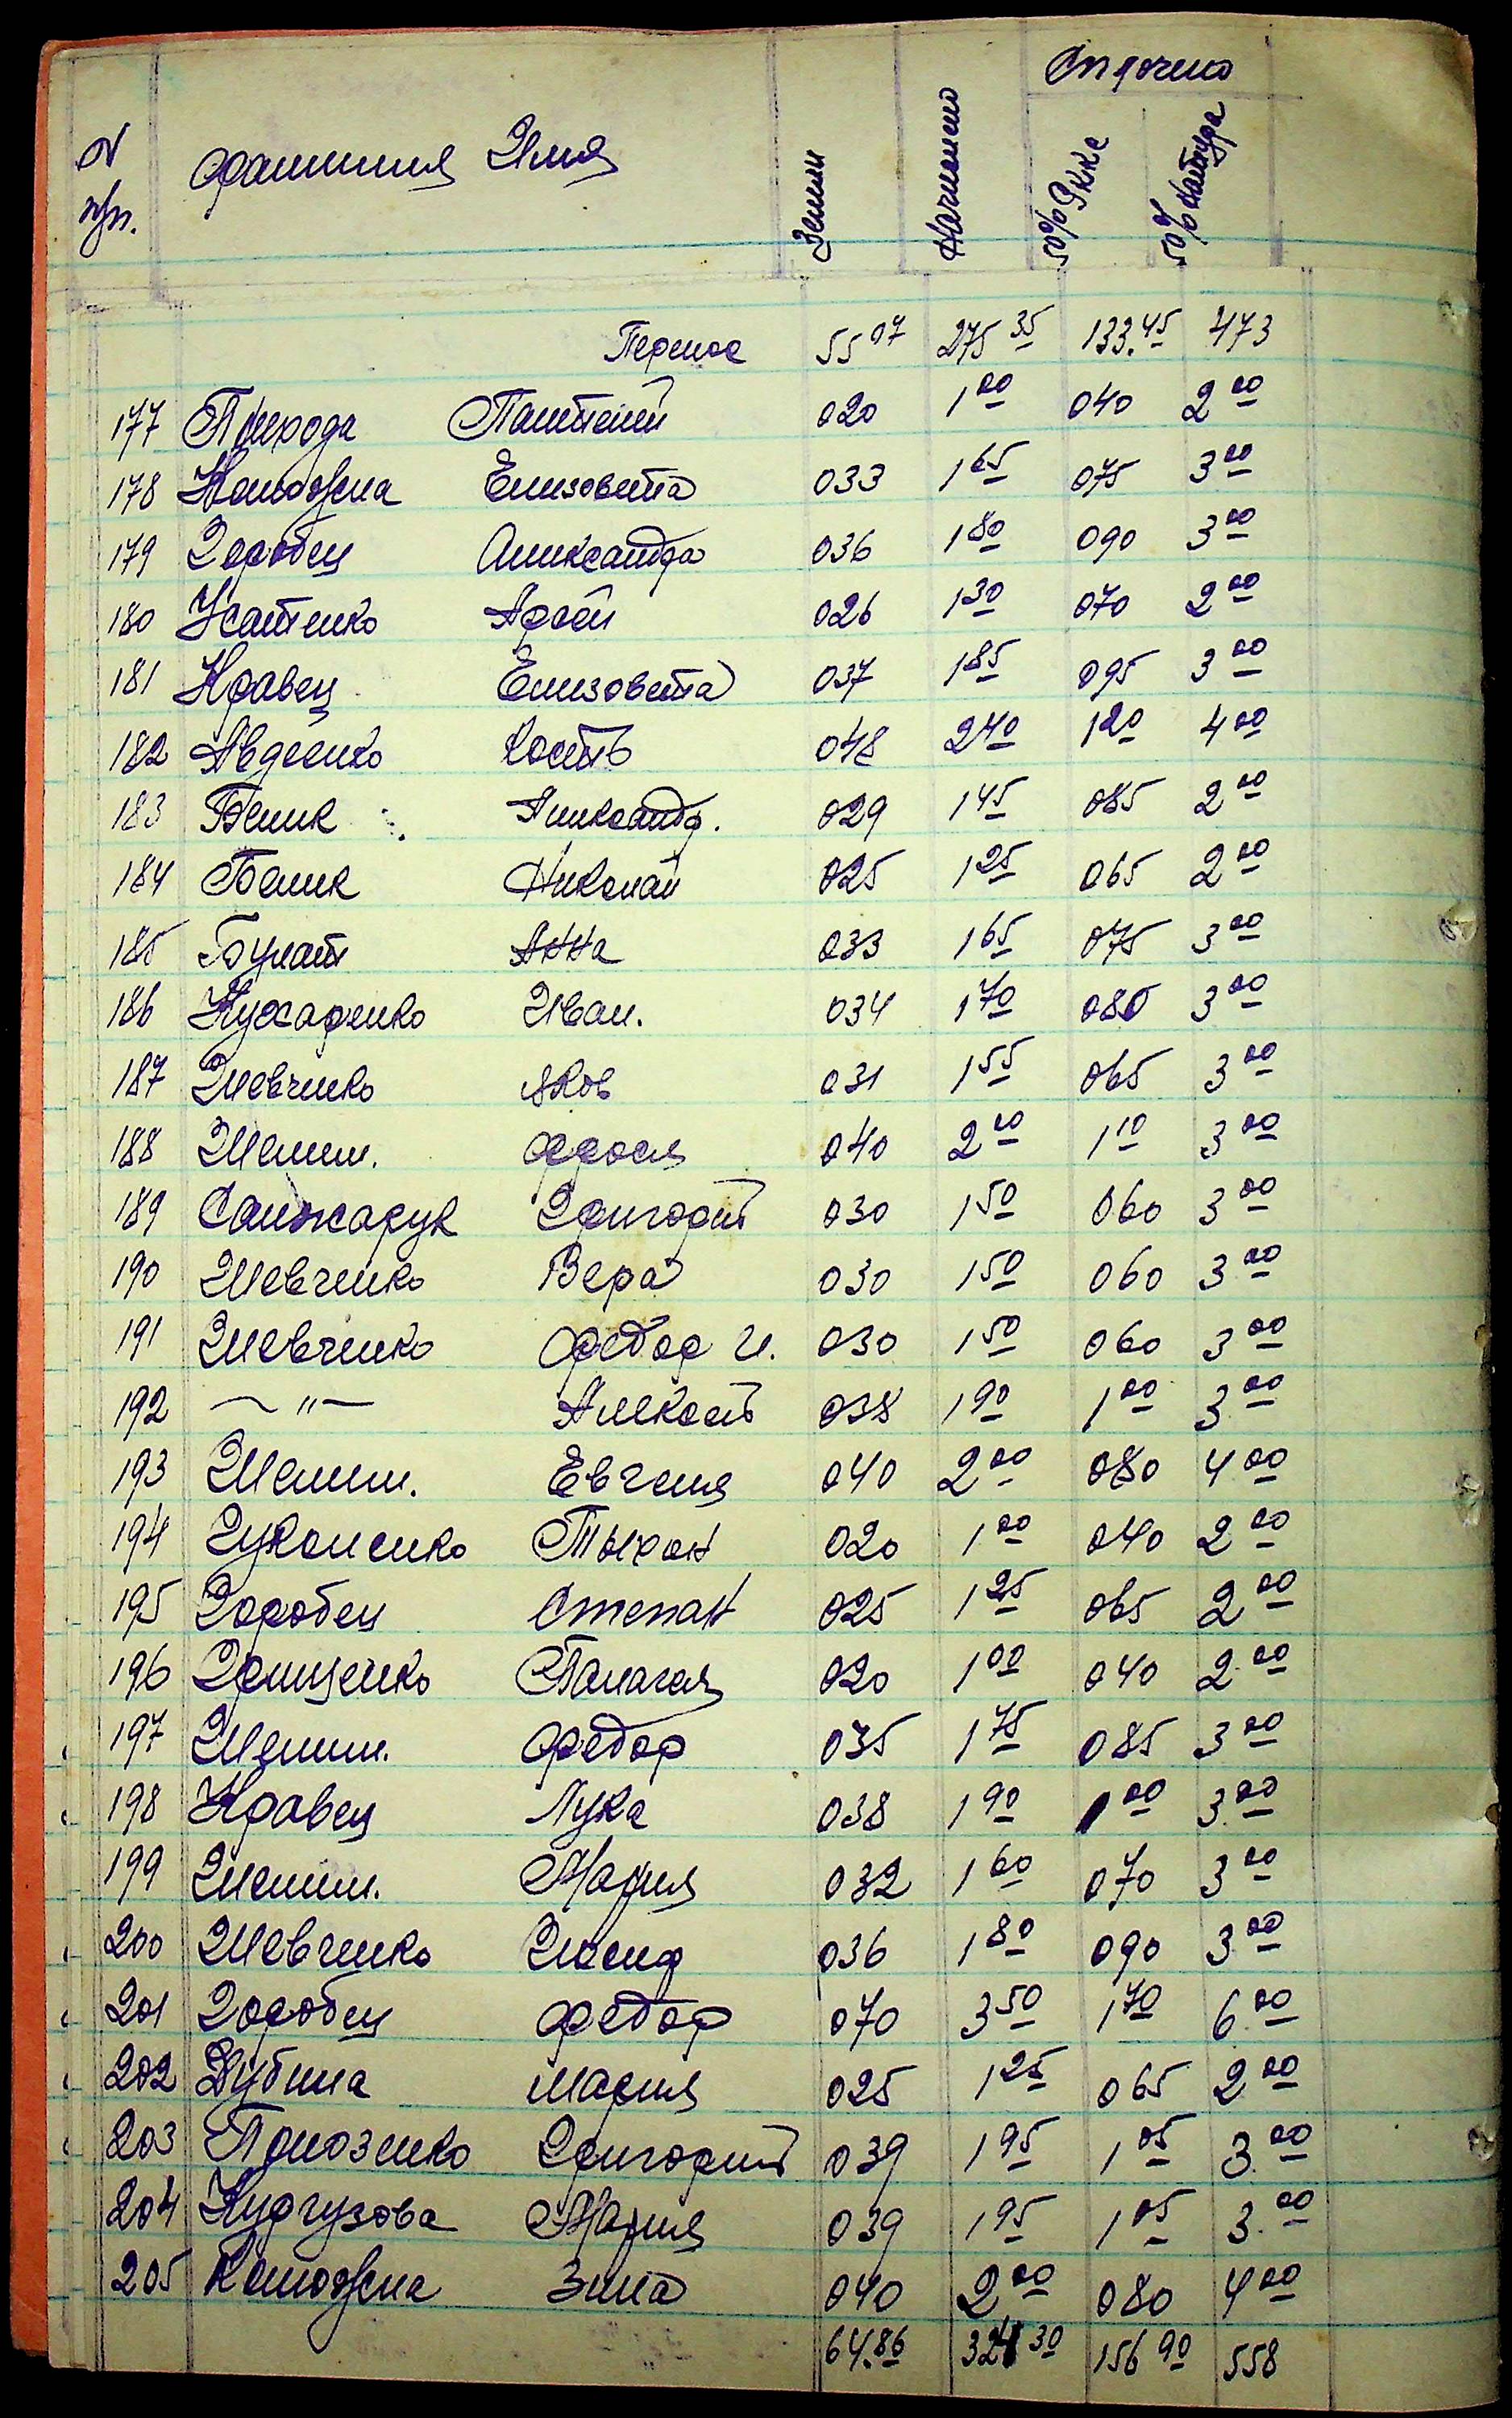 Оплочено
N п/п. Фамилия Имя Земли Начислено 50% Рккс 50% Натура
Перенос 55 07 275 35 133.45 473
177 Природа Пантелей 020 1 00 040 2 00
178 Колоджна Елизовета 033 1 65 075 3 00
179 Горобец Александра 036 1 80 090 3 00
180 Усатенко 026 1 30 070 2 00
181 Кравец Елизовета 037 1 85 095 3 00
182 Авдеенко Кость 048 2 40 1 20 4 00
183 Белик Александр. 029 1 45 085 2 00
184 Белик Николай 025 1 25 065 2 00
185 Булат Анна 033 1 65 075 3 00
186 Кухаренко Иван. 034 1 70 080 3 00
187 Шевченко Яков 031 1 55 065 3 00
188 Шелип. Фрося 040 2 00 1 10 3 00
189 Санжарук Григорий 030 1 50 060 3 00
190 Шевченко Вера 030 1 50 060 3 00
191 Шевченко Федор И. 030 1 50 060 3 00
192 — " — Алексей 038 1 90 1 00 3 00
193 Шелип. Евгения 040 2 00 080 4 00
194 Тыхон 020 1 00 040 2 00
195 Горобец Степан 025 1 25 065 2 00
196 Грищенко Палагея 020 1 00 040 2 00
197 Шелип. Федор 035 1 75 085 3 00
198 Кравец Лука 038 1 90 1 00 3 00
199 Шелип. Мария 032 1 60 070 3 00
200 Шевченко Иосиф 036 1 80 090 3 00
201 Горобец Федор 070 3 50 1 70 6 00
202 Дубина Мария 025 1 25 065 2 00
203 Григорий 039 1 95 1 05 3 00
204 Кургузова Мария 039 1 95 1 05 3 00
205 Колоджна Зина 040 2 00 080 4 00
64.86 324 30 156 90 558